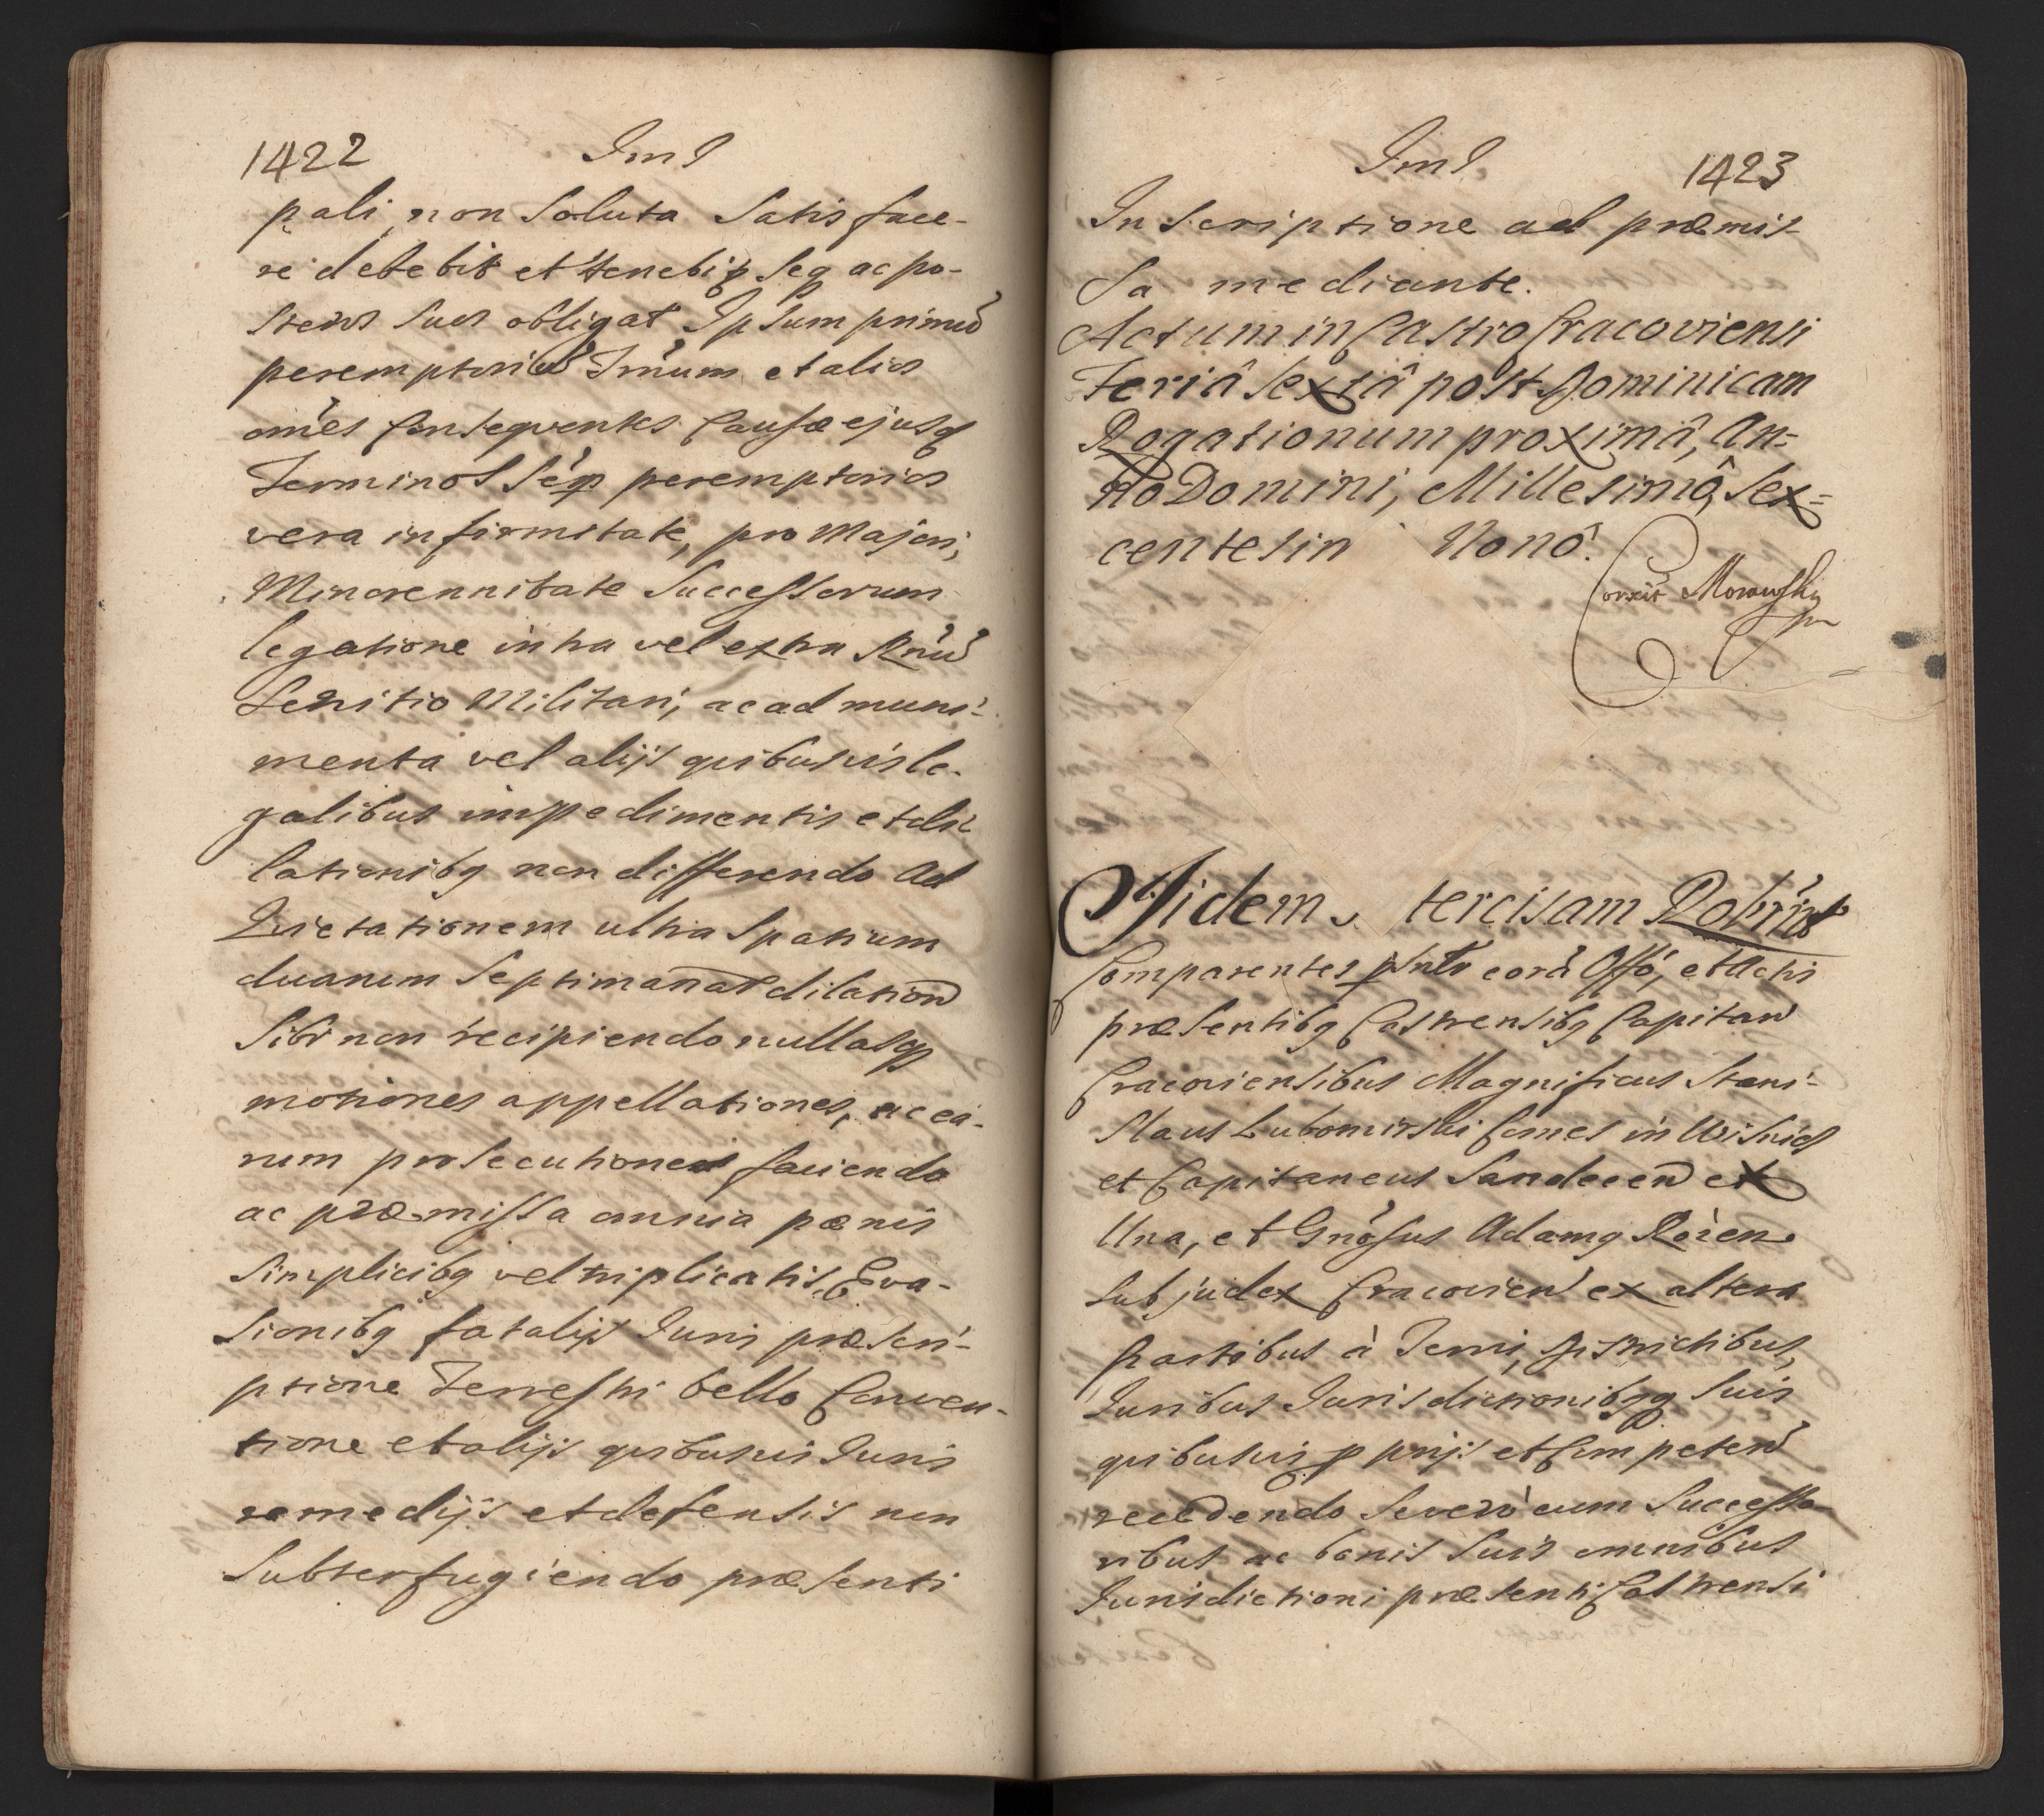 1422
pali non Soluta Satisface-
re debebit et tenebitz Seq ac po-
steros Suos obligat Ipsum primũ
peremptoriũ Tmũm et alios
om̃es Consequentes Causæ ejusq
Terminos Sẽp peremptorios
vera infirmitate, pro Majori,
Minorennitate Successorum
legatione intra vel extra Rnũ
Servitio Militari, ac ad muni-
menta vel alijs quibusuis le-
galibus impedimentis et di-
lationibq non differendo Ad
Quietationem ultra Spatium
duarum Septimanar dilation
Sibi non recipiendo nullasqs
motiones appellationes, ac ea-
rum prosecutiones faciendo
ac præmissa omnia pœnis
Simplicibq vel triplicatis, Eva-
Sionibq fatalijs Juris præscri-
ptione Terrestri bello Conven-
tione et alijs quibusuis Juris
remedijs et defensis non
Subterfugiendo præsenti
1423
Inscriptione ad præmis-
Sa mediante.
Actum in Castro Cracoviensi
Feriâ Sextâ post Dominicam
Rogationum proximâ, An-
no Domini, Millesimô, Sex-
centesim Nonô.
Corexit Morawski
mp
Iidem tercisam Roborãt
Comparentes psntr corã Offo, et Actis
præsentibq Castrensibq Capitan
Cracoviensibus Magnificus Stani-
slaus Lubomirski Comes in Wisnicz
et Capitaneus Sandecen ex
Una, et Gnõsus Adamq Rożen
Subjudex Cracovien ex altera
Partibus à Terris, Districtibus,
Juribus Jurisdictionibqq Suis
quibusuis pprijs et Competen
recedendo Severò cum Successo-
ribus ac bonis Suis omnibus
Jurisdictioni præsenti Castrensi